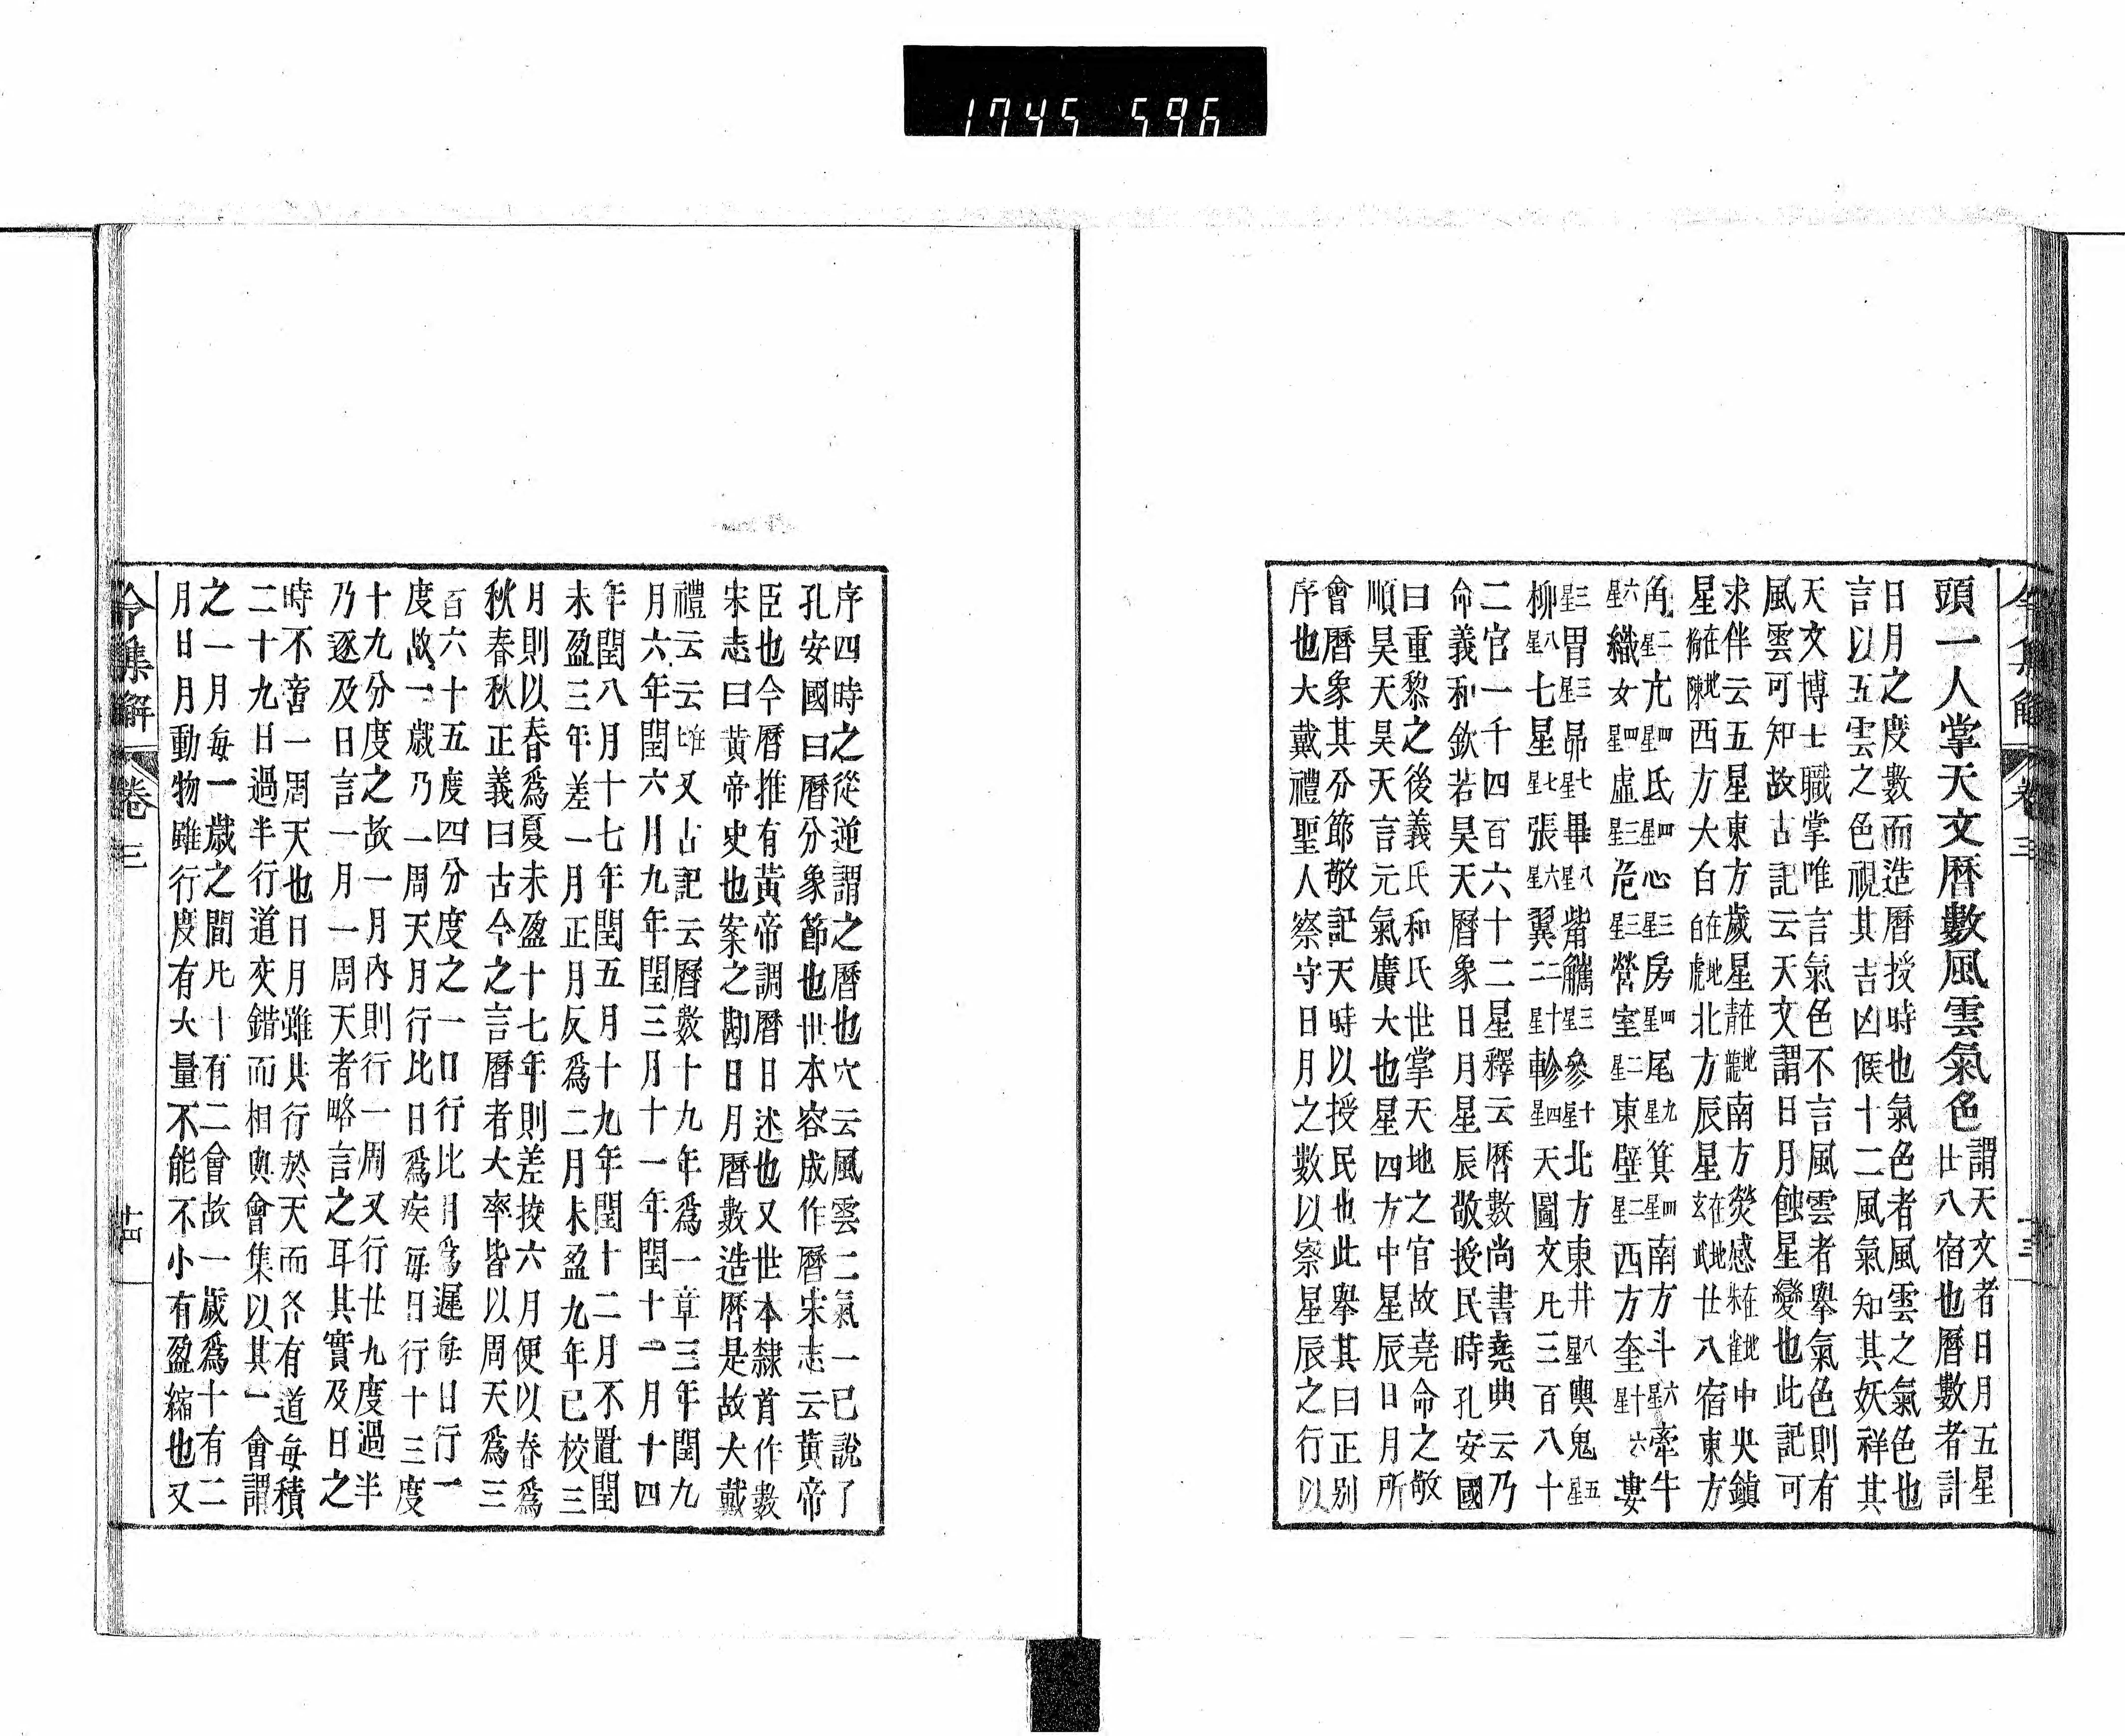 1745 596
令集解 卷三
頭一人掌天文曆數風雲氣色
謂天文者日月五星
廿八宿也曆數者計
日月之度數而造曆授時也氣色者風雲之氣色也
言以五雲之色視其吉凶候十二風氣知其妖祥其
天文博士職掌唯言氣色不言風雲者舉氣色則有
風雲可知故古記云天文謂日月蝕星變也此記可
求伴云五星東方歲星在地靑龍南方熒惑在地朱雀中央鎭
星在地勾陳西方大白在地白虎北方辰星在地玄武廿八宿東方
角二星亢四星氐四星心三星房四星尾九星箕四星南方斗六星牽牛
六星織女四星虛三星危三星營室二星東壁二星西方奎十六星婁
三星胃三星昴七星畢八星觜觿三星參十星北方東井八星輿鬼五星
柳八星七星七星張六星翼二十二星軫四星天圖文凡三百八十
二官一千四百六十二星釋云曆數尚書堯典云乃
命義和欽若昊天曆象日月星辰敬授民時孔安國
曰重黎之後義氏和氏世掌天地之官故堯命之敬
順昊天昊天言元氣廣大也星四方中星辰日月所
會曆象其分節敬記天時以授民也此舉其曰正別
序也大戴禮聖人察守日月之數以察星辰之行以
序四時之從逆謂之曆也穴云風雲二氣一已說了
孔安國曰曆分象節也世本容成作曆宋志云黃帝
臣也今曆推有黃帝調曆日述也又世本隸首作數
宋志曰黃帝史也案之勘日月曆數造曆是故大戴
禮云云又古記云曆數十九年爲一章三年閏九
月六年閏六月九年閏三月十一年閏十一月十四
年閏八月十七年閏五月十九年閏十二月不置閏
未盈三年差一月正月反爲二月未盈九年已校三
月則以春爲夏未盈十七年則差挍六月便以春爲
秋春秋正義曰古今之言曆者大率皆以周天爲三
百六十五度四分度之一日行比月爲遲每日行一
度故一歲乃一周天月行比日爲疾每日行十三度
十九分度之故一月內則行一周又行廿九度過半
乃逐及日言一月一周天者略言之耳其實及日之
時不啻一周天也日月雖共行於天而各有道每積
二十九日過半行道交錯而相與會集以其一會謂
之一月每一歲之間凡十有二會故一歲爲十有二
月日月動物雖行度有大量不能不小有盈縮也又
令集解 卷三 十四